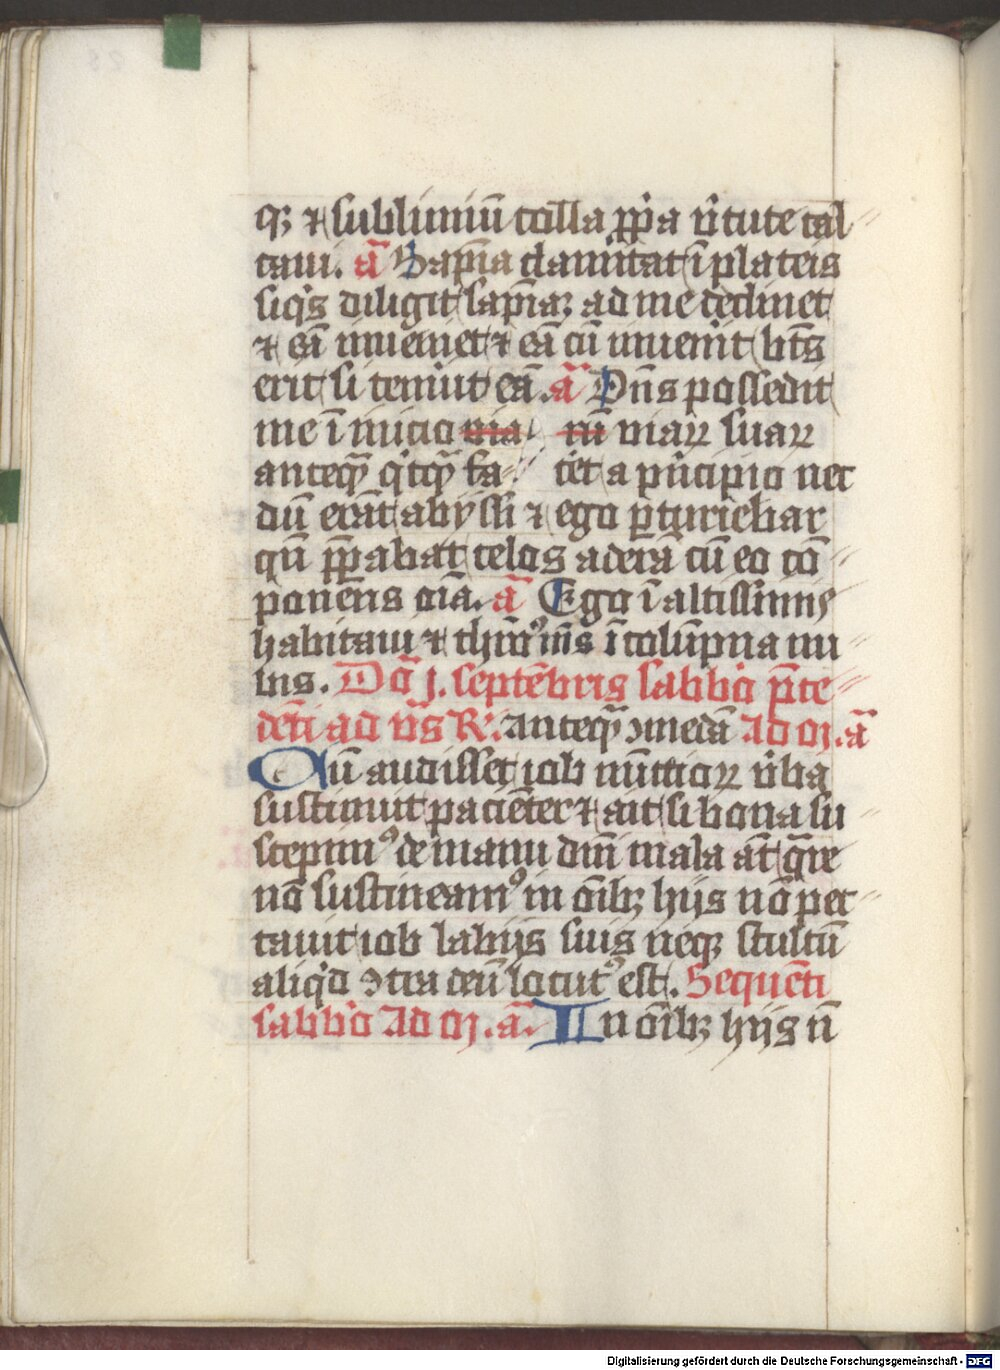 qꝫ ⁊ sublimiū colla ꝓpͥa ỽtute cal
caui. ā Sapīa clamitat ī plateis
siqͥs diligit sapīaꝫ ad me declinet
⁊ eā inueniet ⁊ eā cū inuenit bt̄s
erit si tenuit eā. ā Dn̄s possedit
me ī inicio via rū viaꝝ suaꝝ
anteqͣ̄ qͥcqͣ̄ fa cet a pͥncipio nec
dū erāt abyssi ⁊ ego ꝑturiebar
qn̄ p̄ꝑabat celos aderā cū eo cō
ponens oīa. ā Ego ī altissimis
habitaui ⁊ thronꝰ mꝰs ī colūpna nu
bis. Dōca j. septēbris sabbͦo p̄ce
dēti ad vs̄ R. anteqͣ̄ ꝯmedā Ad m̄. ā
Cū audisset iob nūccioꝝ ỽba
sustinuit paciēter ⁊ ait si bona su
scepimꝰ de manu dn̄i mala āt qͣre
nō sustineamꝰ in oībꝫ hijs nō pec
cauit iob labijs suis neqꝫ stultū
aliqͥd ꝯtra deū locutꝰ est. Sequēti
sabbͦo Ad m̄. ā. In oībꝫ hijs n̄
Digitalisierung gefördert durch die Deutsche Forschungsgemeinschaft - DFG